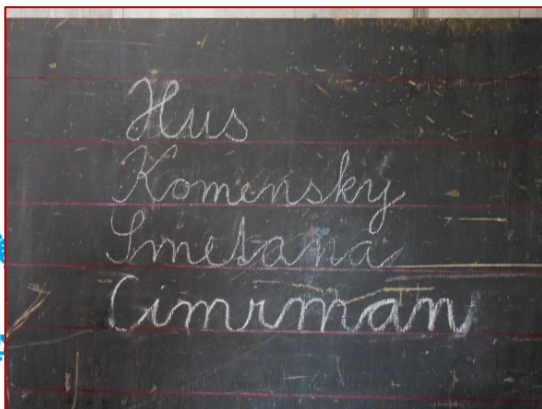 Hus
Komensky
Smetana
Cimrman